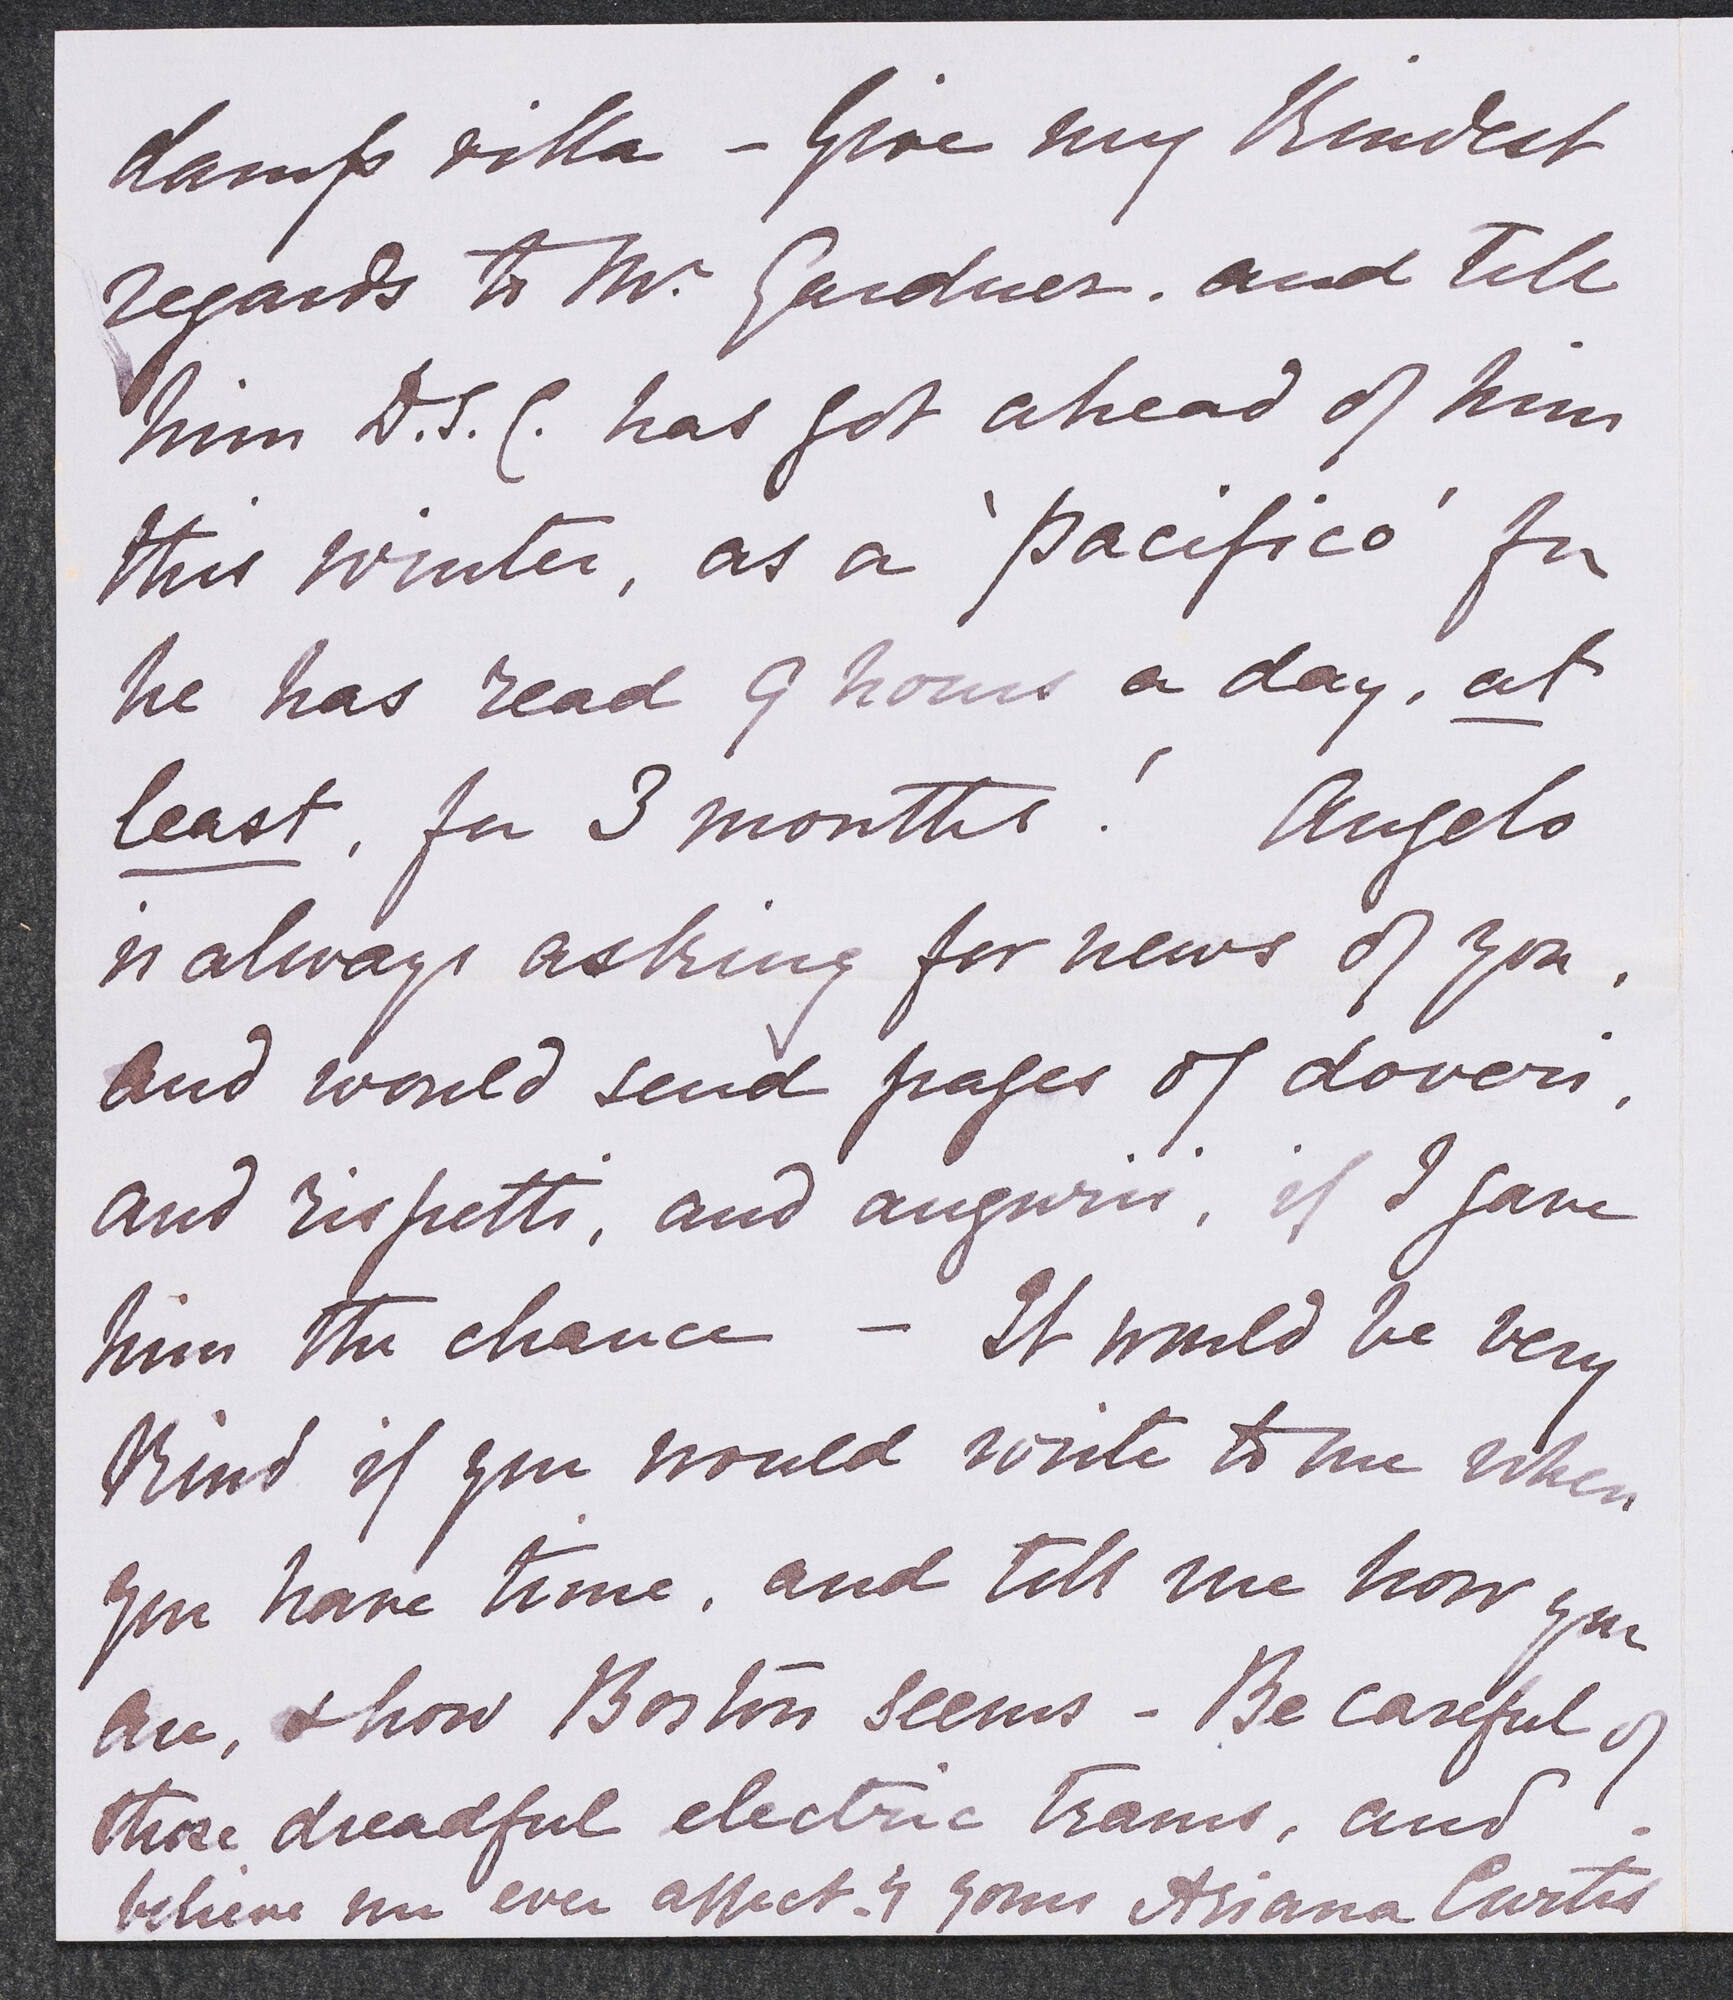 damp villa - Give my Kindest
regards to Mr. Gardner. and tell
him D.S.C. has got ahead of him
this winter, as a 'pacifico' for
he has read 9 hours a day, at
least, for 3 months! Angelo
is always asking for news of you,
and would send pages of doveri,
and rispetti, and augurii, if I gave
him the chance - It would be very
Kind if you would write to me when
you have time, and tell me how you
are, & how Boston seems - Be careful of
those dreadful electric trams, and
believe me ever affect.ly yours Ariana Curtis